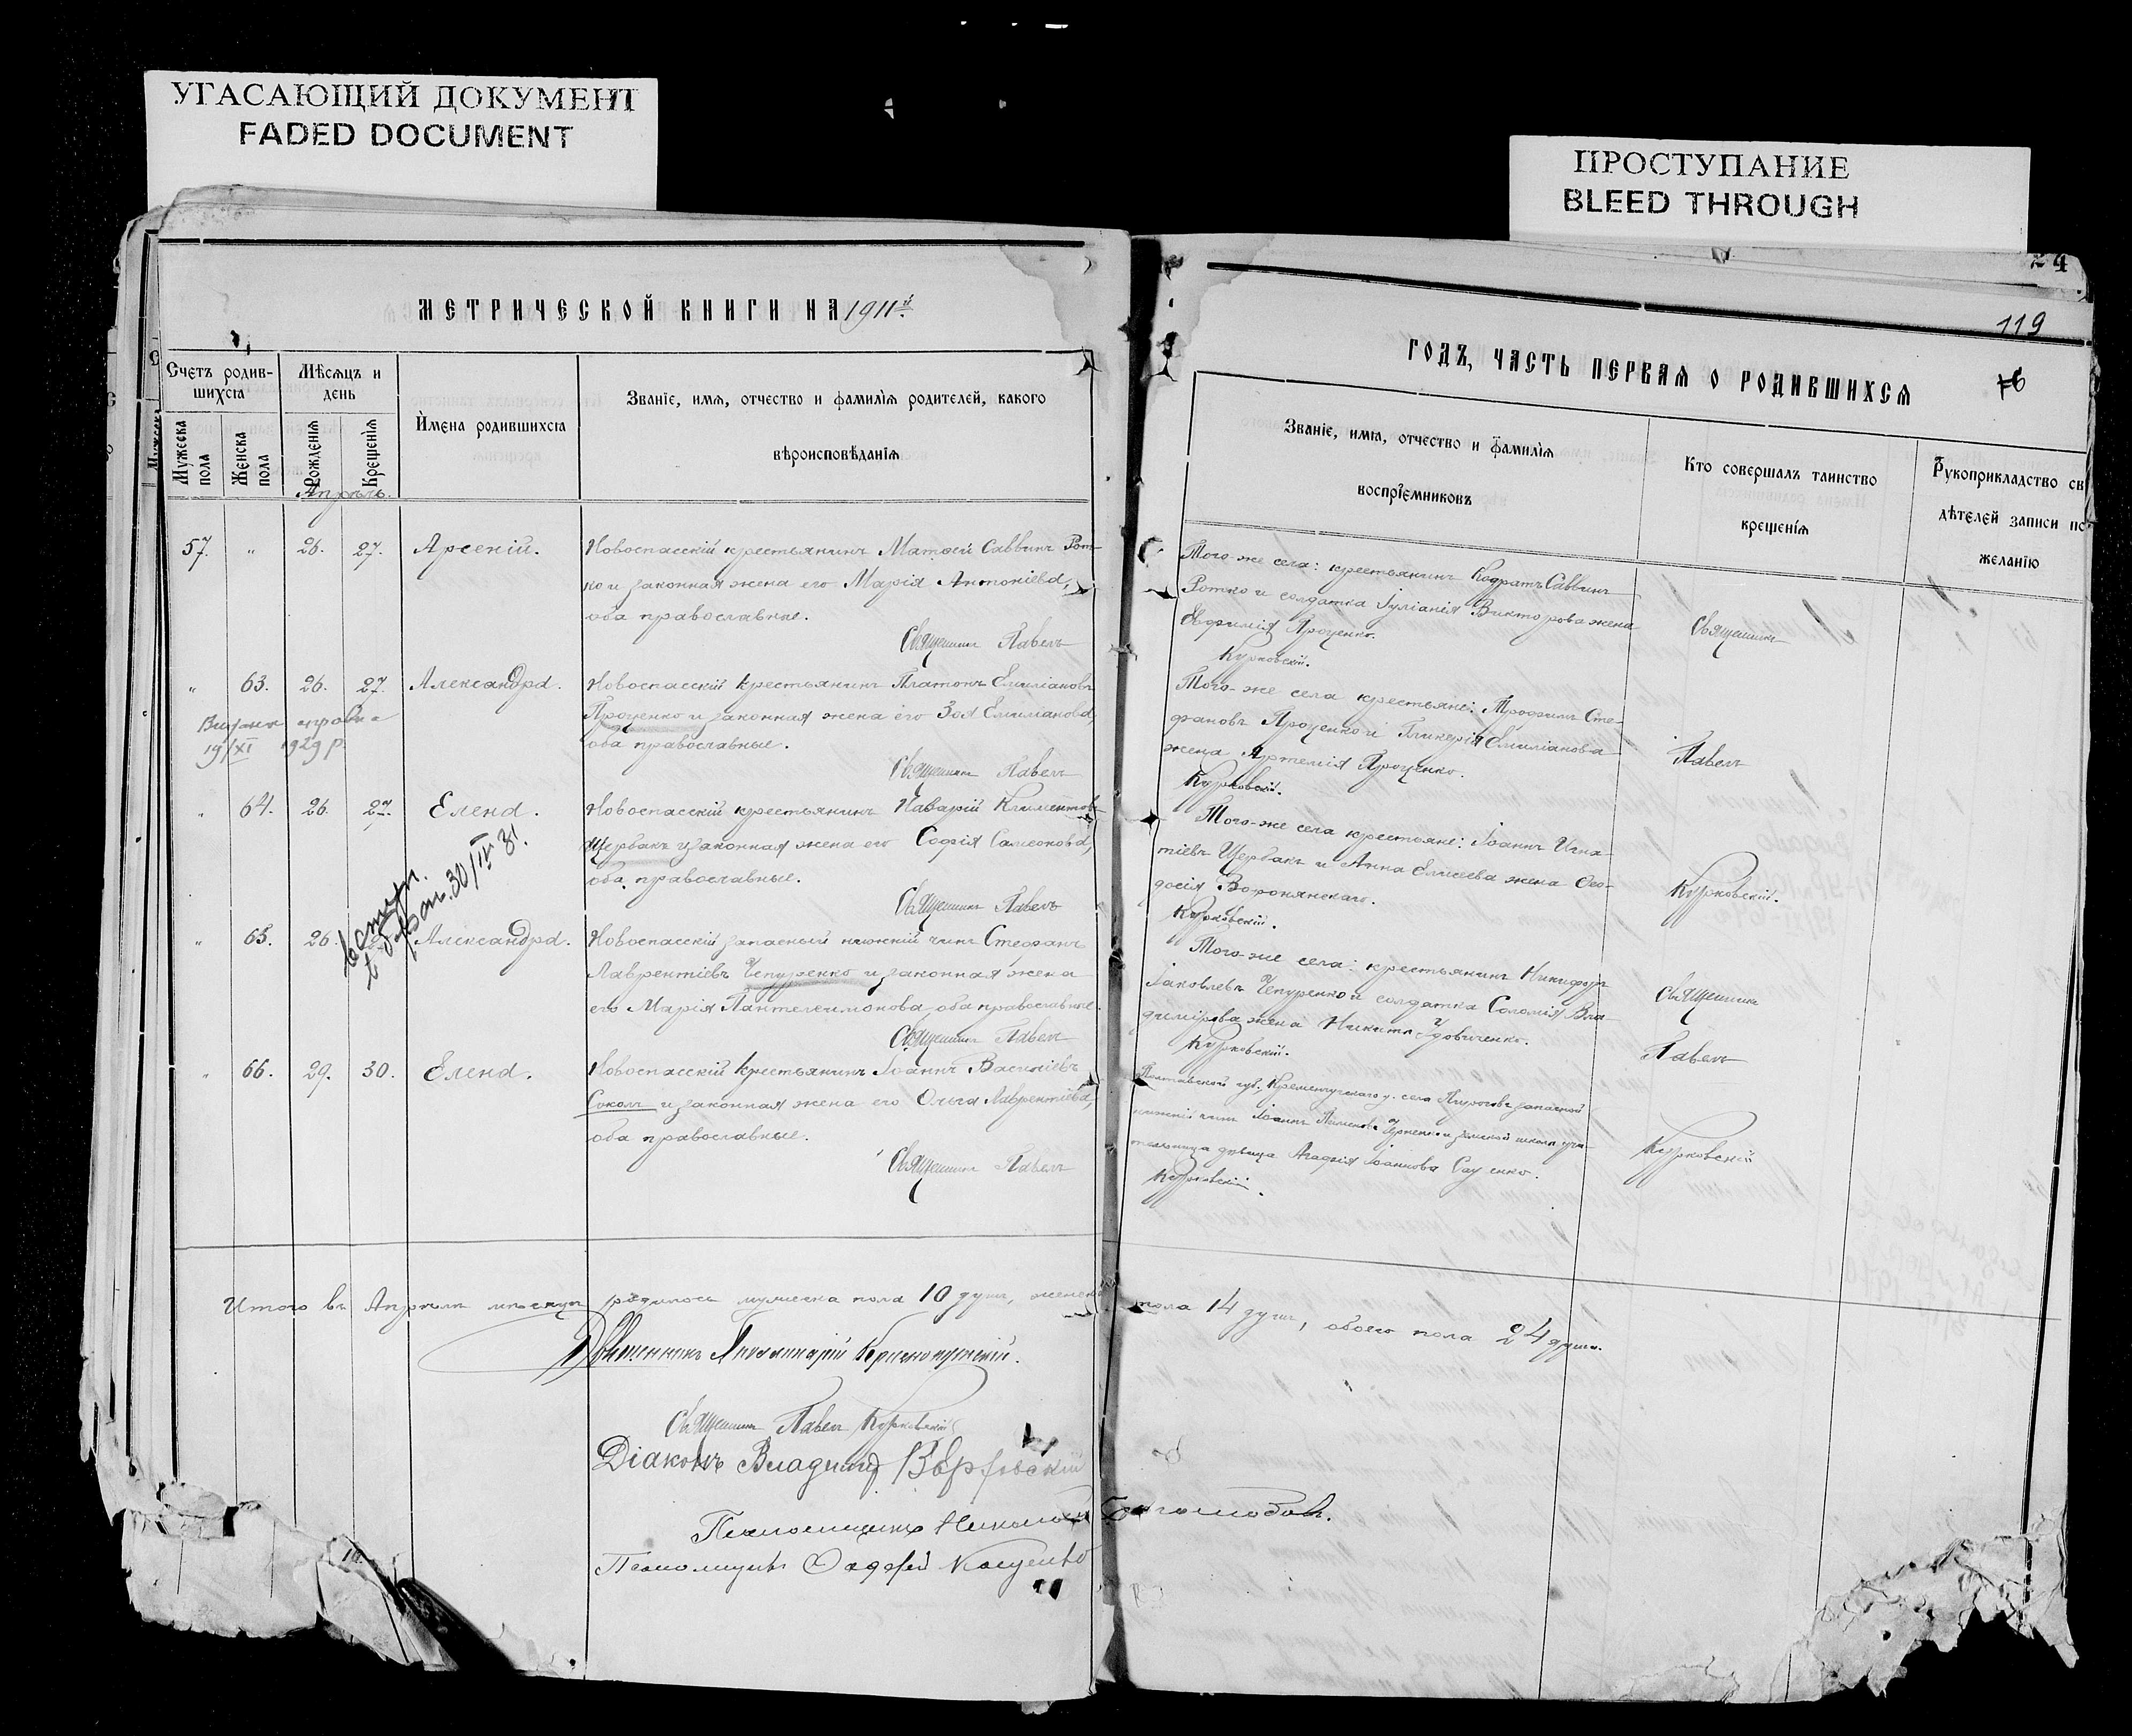 УГАСАЮЩИЙ ДОКУМЕНТ
FADED DOCUMENT
ПРОСТУПАНИЕ
BLEED THROUGH
24
МЕТРИЧЕСКОЙ КНИГИ НА 1911й
119
ГОДЪ, ЧАСТЬ ПЕРВАЯ О РОДИВШИХСЯ
76
Счетъ родив-
шихсѧ
Мужеска пола
Женска пола
Мѣсѧцъ и
день
Рожденїѧ
Крещенїѧ
Имена родившихсѧ
Званїе, имѧ, отчество и фамилїѧ родителей, какого
вѣроисповѣданїѧ
Званїе, имѧ, отчество и фамилїѧ
воспрїемниковъ
Кто совершалъ таинство
крещенїѧ
Рукоприкладство св
дѣтелей записи по
желанїю
Апрѣль.
57. " 26. 27. Арсеній.
Новоспасскій крестьянинъ Матѳей Саввинъ Рот-
ко и законная жена его Марія Антоніева,
оба православные.
Священникъ Павелъ
Того-же села: крестьянинъ Кодратъ Саввинъ
Ротко и солдатка Іуліанія Викторова жена
Евфимія Проценко.
Курковскій.
Священникъ
" 63. 26. 27. Александра.
Новоспасскій крестьянинъ Платонъ Емиліановъ
Проценко и законная жена его Зоя Емиліанова,
оба православные.
Священникъ Павелъ
19/XI 1929 р.
Того-же села крестьяне: Трофимъ Сте-
фановъ Проценко и Гликерія Емиліанова
жена Артемія Проценко.
Курковскій.
Павелъ
" 64. 26. 27. Елена.
Новоспасскій крестьянинъ Назарій Климентовъ
Щербакъ и законная жена его Софія Самсонова,
оба православные.
Священникъ Павелъ
30/IV 31
Того-же села крестьяне: Іоаннъ Игна-
тіевъ Щербакъ и Анна Елисеева жена Ѳео-
досія Воронянскаго.
Курковскій.
Курковскій.
" 65. 26. Александра.
Новоспасскій запасный нижній чинъ Стефанъ
Лаврентіевъ Чепуренко и законная жена
его Марія Пантелеимонова, оба православные.
Священникъ Павелъ
Того-же села: крестьянинъ Никифоръ
Іаковлевъ Чепуренко и солдатка Соломія Вла-
димірова жена Никиты Удовиченко.
Курковскій.
Священникъ
Павелъ
" 66. 29. 30. Елена.
Новоспасскій крестьянинъ Іоаннъ Васильевъ
Соколъ и законная жена его Ольга Лаврентіева,
оба православные.
Священникъ Павелъ
Полтавской губ., Кременчугскаго у. села Пироговъ запасной
нижній чинъ Іоаннъ и земской школы учи-
тельница дѣвица Агафія Іоаннова
Курковскій.
Курковскій
Итого въ Апрѣлѣ мѣсяцѣ родилось мужеска пола 10 душъ, женска пола 14 душъ, обоего пола 24 души.
Священникъ Аполлинарій Краснокутскій.
Священникъ Павелъ Курковскій
Діаконъ Владимір
Псаломщикъ Николай Боголюбовъ.
Псаломщикъ Фаддей Кащенко